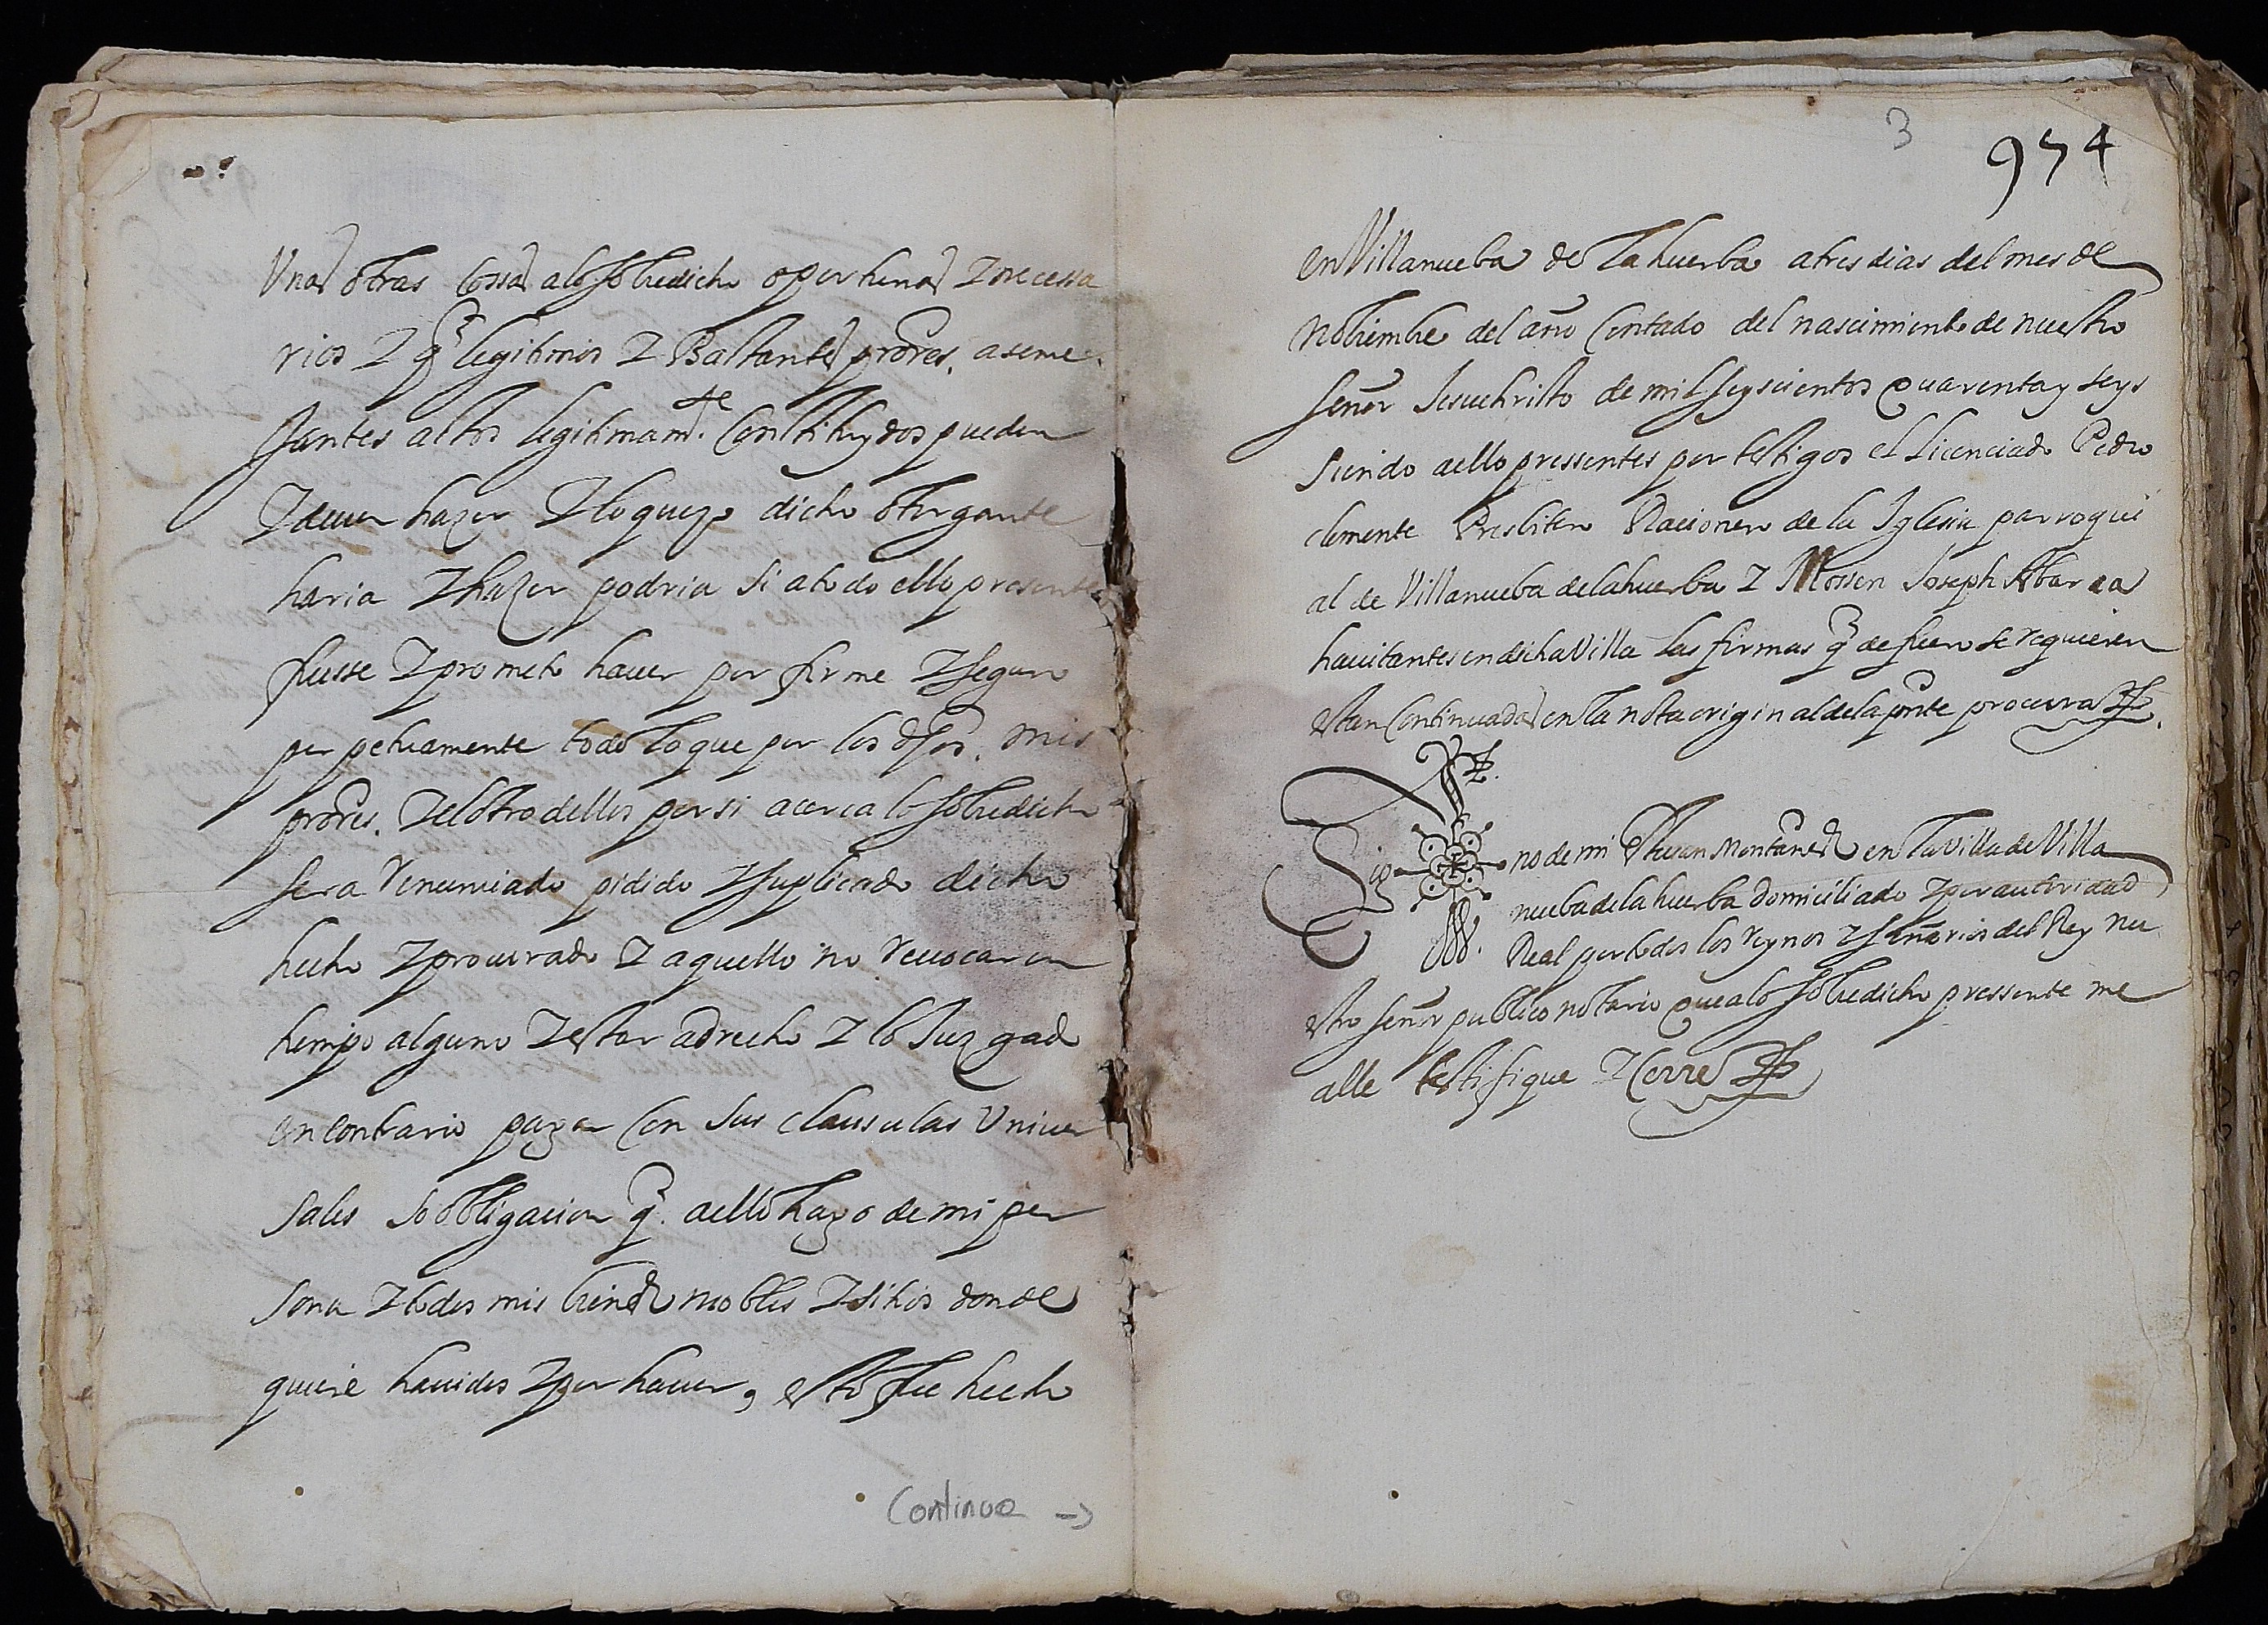 Unas otras cossas alo sobredicho oportunas Z necessa
rios Z q̃ legitimos Z Bastantes prores. aseme
Jantes actos legitimamte. Constituydos pueden
Z deuen hazer Z lo que yo dicho otorgante
haria Z hazer podria si a todo ello presente
fuesse Z prometo hauer por firme Z seguro
perpetuamente todo lo que por los dhos. mis
prores. Z el otro dellos por si acerca lo sobredicho
sera renunciado pidido Z suplicado dicho
hecho Z procurado Z aquello no reuocar en
tiempo alguno Z estar a drecho Z lo Juzgado
en contrario pagar Con sus clausulas Uniuer
sales so obligacion q̃. aello hago de mi per
sona Z todos mis bienes mobles Z sitios donde
quiere hauidos Z por hauer, esto fue hecho
Continua →
3
974
en Villanueba de la huerba a tres dias del mes de
nobiembre del año Contado del nascimiento de nuestro
señor Jesuchristo de mil seyscientos quarenta y seys
siendo aello pressentes por testigos el Licenciado Pedro
clemente Presbitero Racionero de la Iglesia parroqui
al de Villanueba de la huerba Z Mossen Joseph Abarca
hauitantes en dicha Villa las firmas q̃ de fuero se requieren
estan Continuadas en la nota original de la pñte procura
Sig no de mi Juan Montañes en la villa de Villa
nueba de la huerba domiciliado Z por autoridad
Real por todos los reynos Z señorios del Rey nu
estro señor publico notario que alo sobredicho pressente me
alle testifique Z cerre